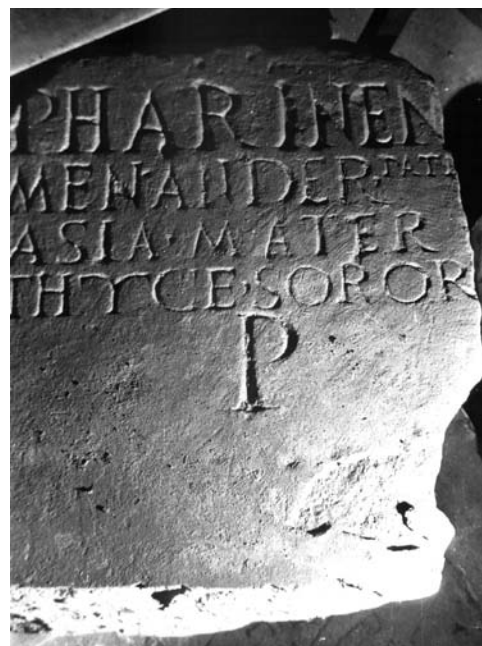 PHARINEN
MENANDER PATE
ASIA·MATER
THYCE·SOROR
P